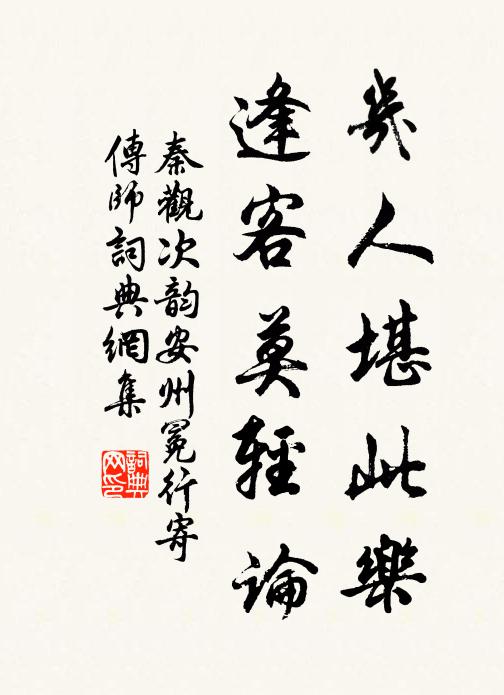 幾人堪此樂
逢客莫輕論
秦觀次韵安州晚行寄
傅師詞典網集
詞典网印